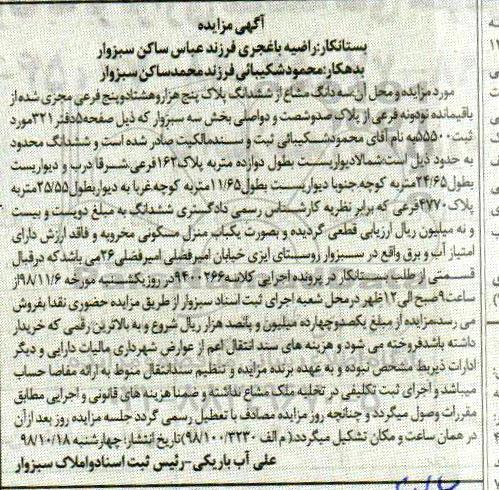 آگهی مزایده
بستانکار:راضیه باغجری فرزند عباس ساکن سبزوار
بدهکار:محمودشکیبائی فرزندمحمدساکن سبزوار
مورد مزایده و محل آن:سه دانگ مشاع از ششدانگ پلاک پنج هزاروهشتادوپنج فرعی مجزی شده از
باقیمانده نودونه فرعی از پلاک صدوشصت و دواصلی بخش سه سبزوار که ذیل صفحه۵دفتر ۳۲۱مورد
ثبت۵۵۵۰۰به نام آقای محمودشکیبائی ثبت و سندمالکیت صادر شده است و ششدانگ محدود
به حدود ذیل است:شمالادیواریست بطول دوازده متربه پلاک۱۶۲فرعی،شرقا درب و دیواریست
بطول۲۴/۶۵متربه کوچه،جنوبا دیواریست بطول۱۱/۶۵متربه کوچه،غربا به دیواربطول۲۵/۵۵متربه
پلاک۳۷۷۰فرعی که برابر نظریه کارشناس رسمی دادگستری ششدانگ به مبلغ دویست و بیست
و نه میلیون ریال ارزیابی قطعی گردیده و بصورت یکباب منزل مسکونی مخروبه و فاقد ارزش دارای
امتیاز آب و برق واقع در سبزوار روستای ایزی خیابان امیرفضلی امیرفضلی۲۶می باشدکه درقبال
قسمتی از طلب بستانکار در پرونده اجرایی کلاسه۹۴۰۰۲۶۶در روزیکشنبه مورخه ۹۸/۱۱/۶از
ساعت۹صبح الی۱۲ظهر درمحل شعبه اجرای ثبت اسناد سبزوار از طریق مزایده حضوری نقدا بفروش
می رسد.مزایده از مبلغ یکصدوچهارده میلیون و پانصد هزار ریال شروع و به بالاترین رقمی که خریدار
داشته باشدفروخته می شود و هزینه های سند انتقال اعم از عوارض شهرداری مالیات دارایی و دیگر
ادارات ذیربط مشخص نبوده و به عهده برنده مزایده و تنظیم سندانتقال منوط به ارائه مفاصا حساب
میباشد و اجرای ثبت تکلیفی در تخلیه ملک مشاع نداشته و ضمنا هزینه های قانونی و اجرایی مطابق
مقررات وصول میگردد و چنانچه روز مزایده مصادف با تعطیل رسمی گردد جلسه مزایده روز بعد ازآن
در همان ساعت و مکان تشکیل میگردد.(م الف ۹۸/۱۰۰/۳۲۳۰)تاریخ انتشار: چهارشنبه ۹۸/۱۰/۱۸
علی آب باریکی-رئیس ثبت اسنادواملاک سبزوار